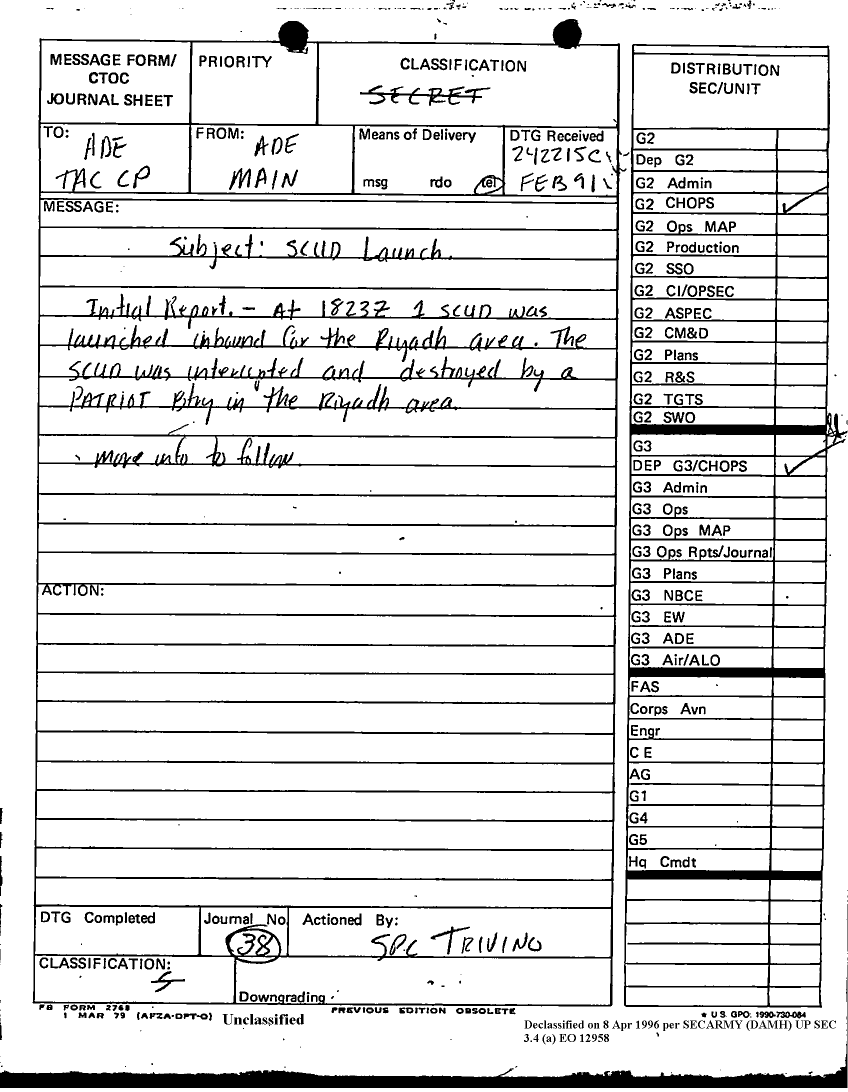 MESSAGE FORM/
CTOC
JOURNAL SHEET
PRIORITY
CLASSIFICATION
SECRET
TO: ADE
TAC CP
FROM: ADE
MAIN
Means of Delivery
msg rdo tel
DTG Received
242215C
FEB 91
MESSAGE:
Subject: SCUD Launch.
Initial Report. - At 1823Z 1 SCUD was
launched inbound for the Riyadh area. The
SCUD was intercepted and destroyed by a
PATRIOT Btry in the Riyadh area.
more info to follow.
ACTION:
DTG Completed
Journal No.
38
Actioned By:
SPC TRIVINO
CLASSIFICATION:
S
Downgrading
FB FORM 2768
1 MAR 79 (AFZA-DPT-O)
Unclassified
PREVIOUS EDITION OBSOLETE
DISTRIBUTION
SEC/UNIT
G2
Dep G2
G2 Admin
G2 CHOPS
G2 Ops MAP
G2 Production
G2 SSO
G2 CI/OPSEC
G2 ASPEC
G2 CM&D
G2 Plans
G2 R&S
G2 TGTS
G2 SWO
G3
DEP G3/CHOPS
G3 Admin
G3 Ops
G3 Ops MAP
G3 Ops Rpts/Journal
G3 Plans
G3 NBCE
G3 EW
G3 ADE
G3 Air/ALO
FAS
Corps Avn
Engr
C E
AG
G1
G4
G5
Hq Cmdt
★ U.S. GPO: 1990-730-084
Declassified on 8 Apr 1996 per SECARMY (DAMH) UP SEC
3.4 (a) EO 12958